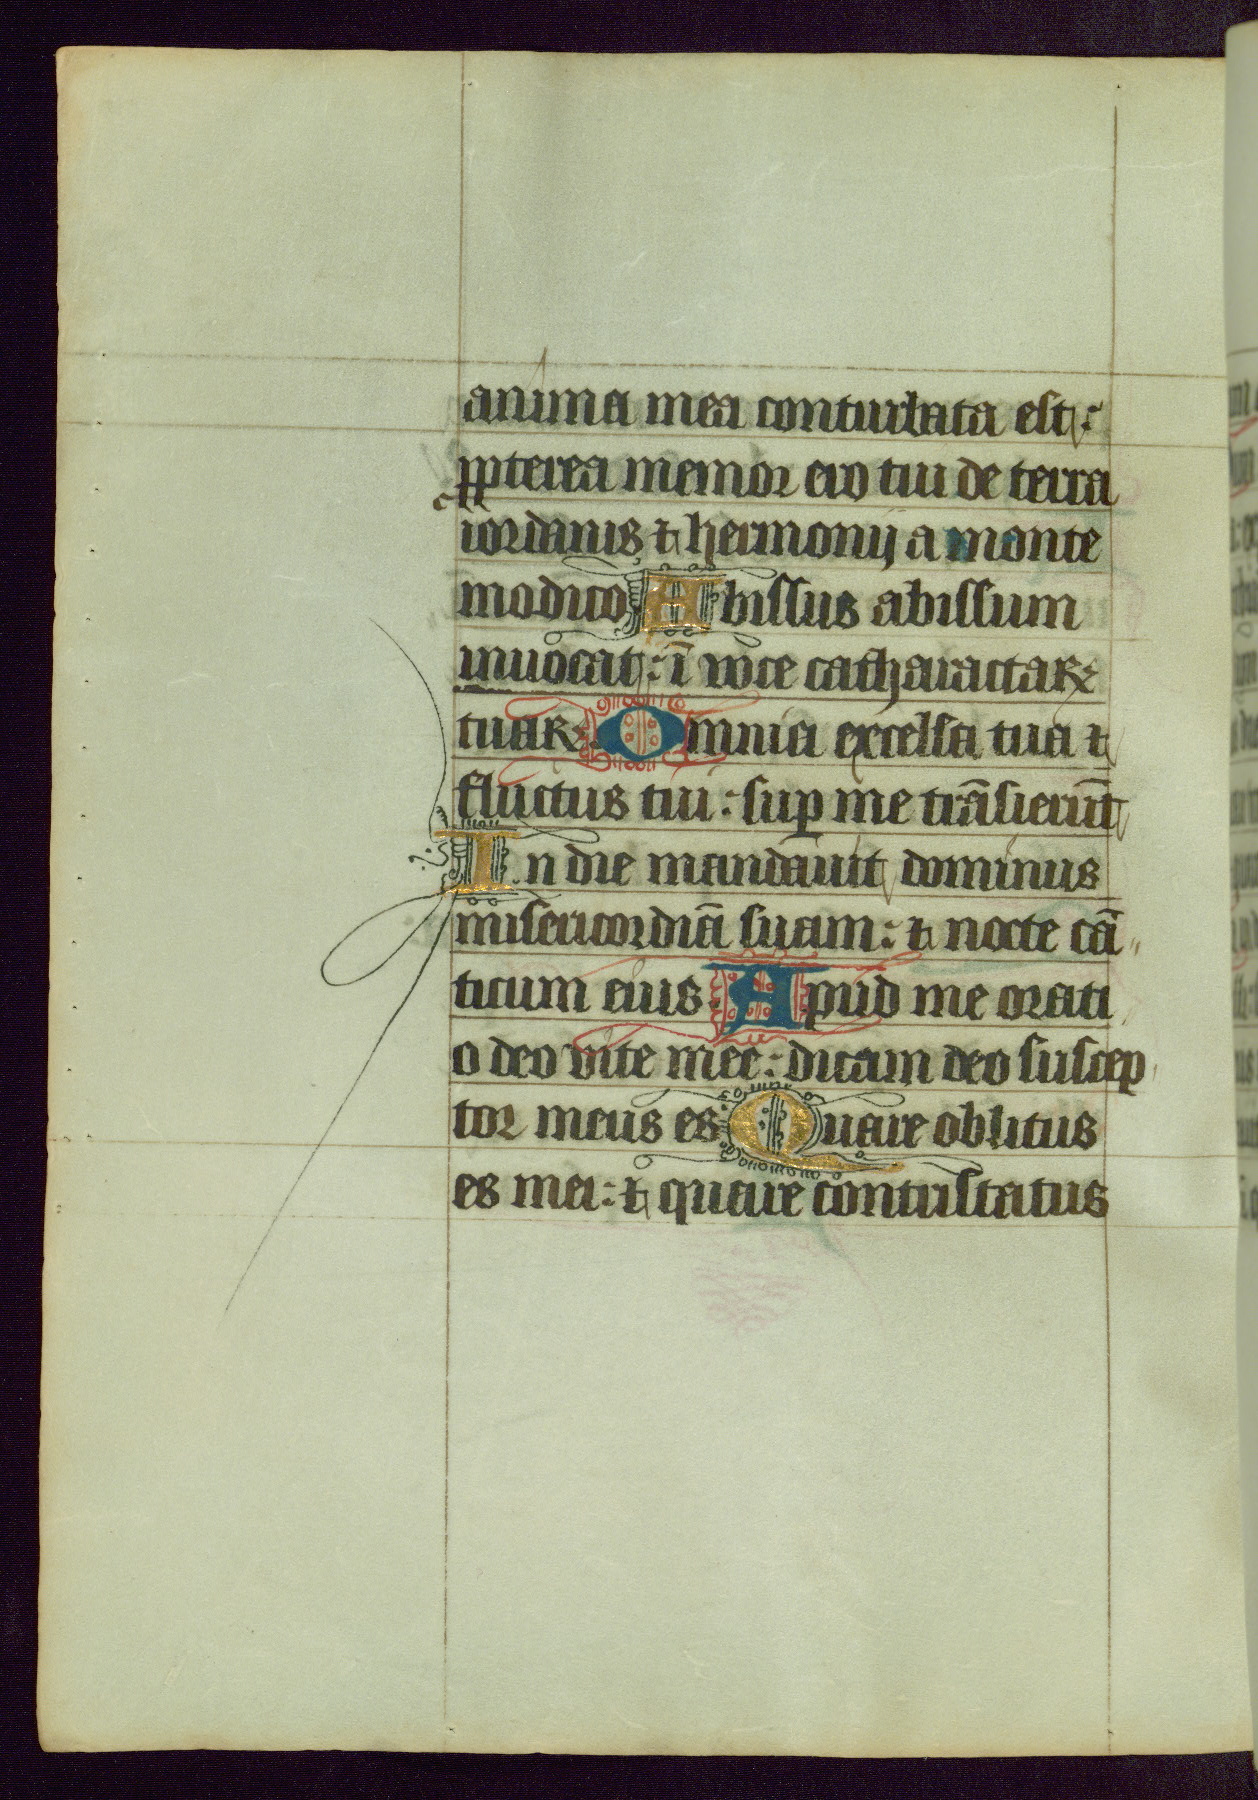 anima mea conturbata est:
ꝓpterea memor ero tui de terra
iordanis ⁊ hermonij a monte
modico Abissus abissum
inuocat: ī voce catharactaꝝ
tuaꝝ Omnia excelsa tua ⁊
fluctus tui: suꝑ me trāsierūt
In die mandauit dominus
misericordiā suam: ⁊ nocte cā
ticum eius Apud me orati
o deo vite mee: dicam deo suscep
tor meus es Quare oblitus
es mei: ⁊ quare contristatus